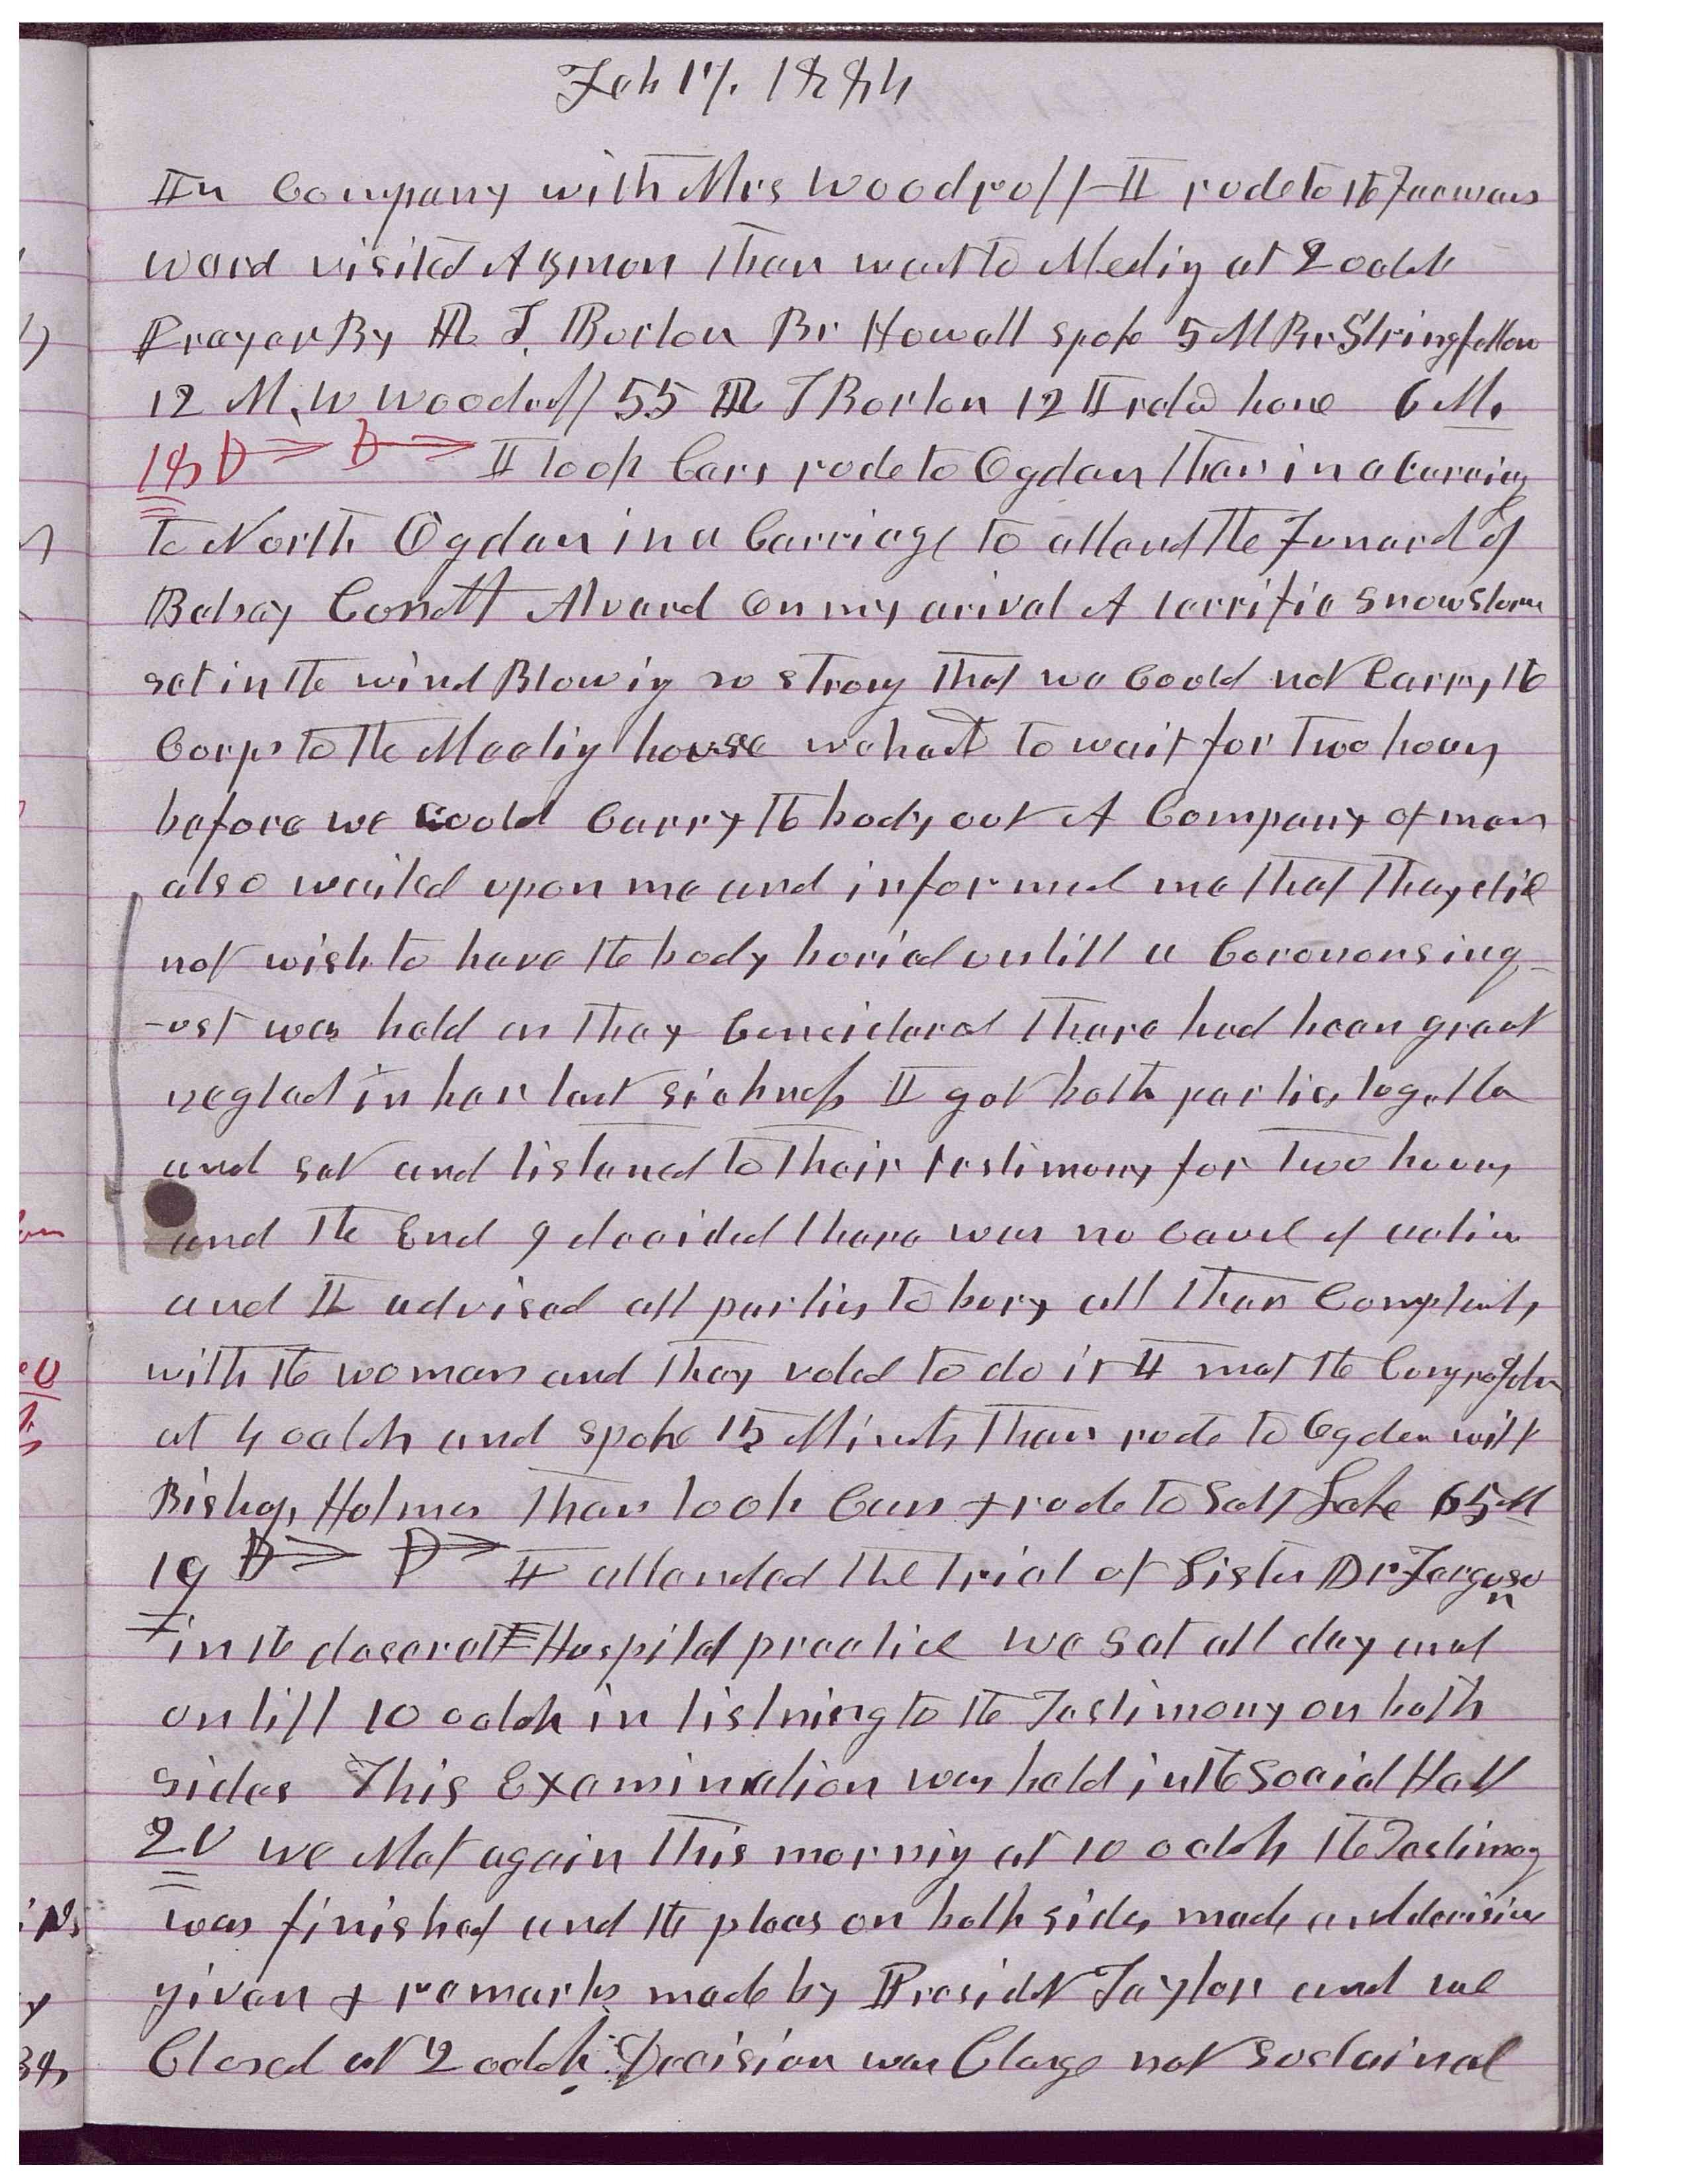 Feb 17. 1884
In Company with Mrs Woodruff I rode to the Farmers
ward visited Asmon then went to Meeting at 2 oclok
Prayer By R T. Borton Br Howell spoke 5 M Br Stringfellow
12 M, W Woodruff 55 R T Borton 12 I rode home 6 M.
18 I took Cars rode to Ogden then in a Carriag
to North Ogden in a Carriage to attend the Funeral of
Betsey Alvard on my arival A terrific snow storm
set in the wind Blowig so strong that we Could not Carry the
Corps to the Meetig house we had to wait for two hours
before we Could Carry the body out A Company of men
also waited upon me and informed me that they did
not wish to have the body buried untill a Coronors inq-
-ust was held as they Concidered there had been great
neglect in her last sickness I got both parties togetther
and sat and listened to their testimony for two hours
and the End I decided there was no Cause of action
and I advised all parties to bury all their Complaints
with the woman and they voted to do it I met the Congregation
at 4 oclock and spoke 15 Minuts then rode to Ogden with
Bishop Holmes then took Cars & rode to Salt Lake 65 M
19 I attended the trial of Sister Dr Ferguson
in the deseret Hospital practice we sat all day and
untill 10 oclok in listning to the Testimony on both
sides This Examination was held in the Social Hall
20 we Met again this mornig at 10 oclok the Testimony
was finished and the pleas on both sides made and decision
given & remarks made by Presidt Taylor and we
Closed at 2 oclok. Decision was Charge not Sustained